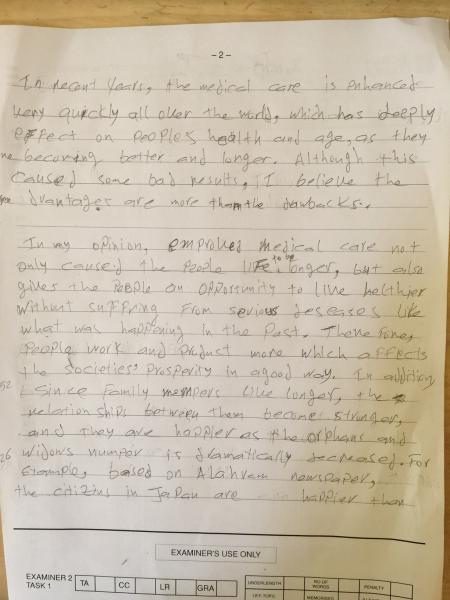 -2-
In recent years, the medical care is enhanced
very quickly all over the world, which has deeply
effect on peoples health and age, as they
becoming better and longer. Although this
caused some bad results, I believe the
dvantages are more than the drawbacks.
In my opinion, emproved medical care not
only caused the people life to be longer, but also
gives the people an opportunity to live helthier
without suffring from serious deseases like
what was happening in the past. Therefore,
people work and product more which affects
the societies' prosperity in a good way. In addition,
since family mempers live longer, the
relation ships between them become stronger,
and they are happier as the orphans and
widows numper is dramatically decreased. For
Example, based on Alahram newspaper,
the citizins in Japan are happier than
EXAMINER'S USE ONLY
EXAMINER 2
TASK 1
TA CC LR GRA
UNDERLENGTH NO OF WORDS PENALTY
OFF-TOPIC MEMORISED